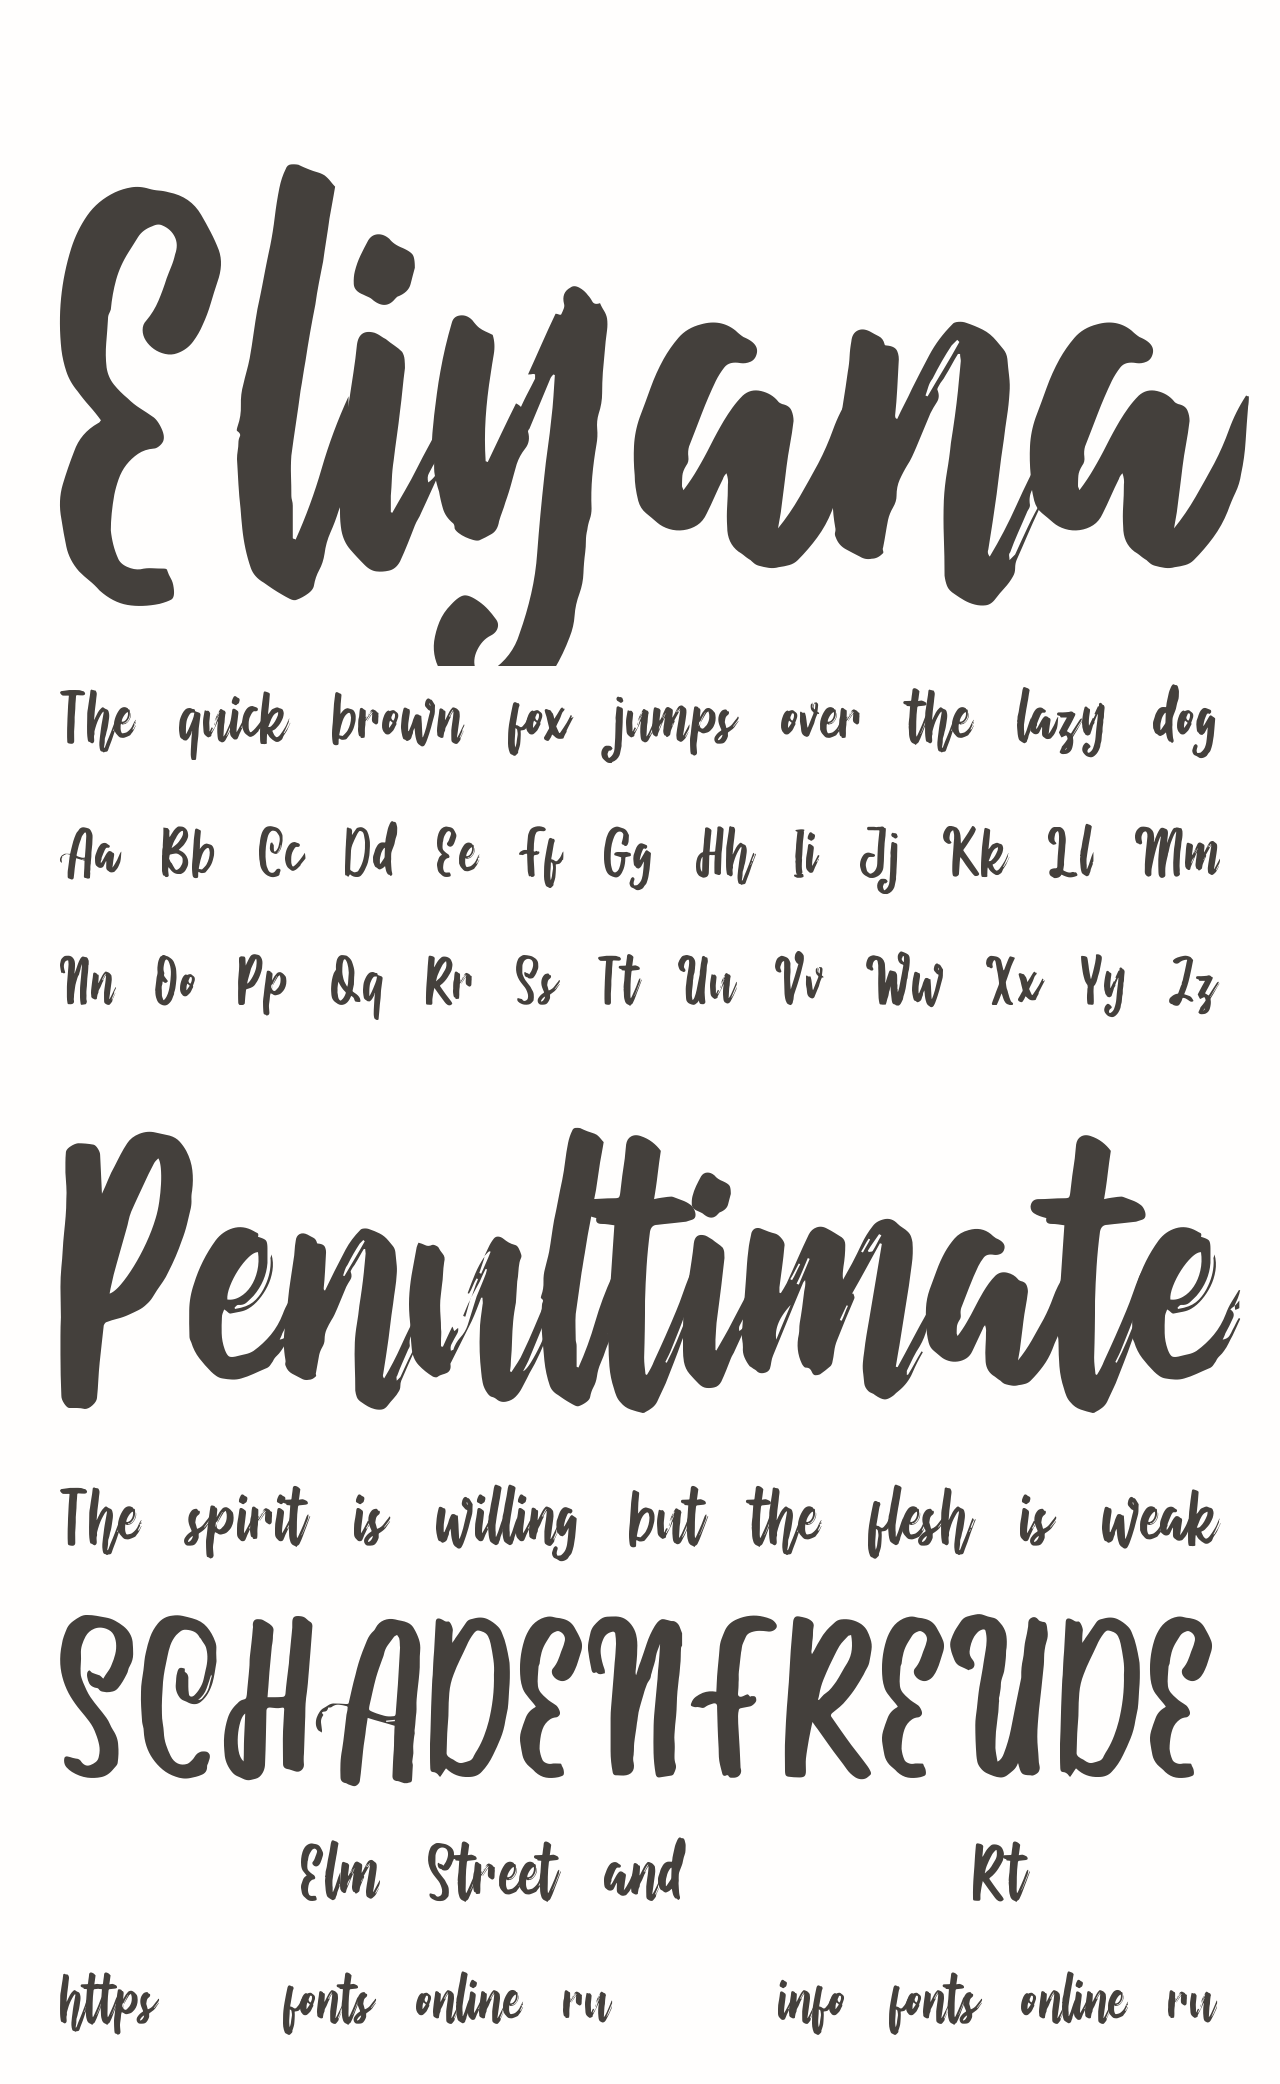 Eliyana
The quick brown fox jumps over the lazy dog
Aa Bb Cc Dd Ee Ff Gg Hh Ii Jj Kk Ll Mm
Nn Oo Pp Qq Rr Ss Tt Uu Vv Ww Xx Yy Zz
Penultimate
The spirit is willing but the flesh is weak
SCHADENFREUDE
Elm Street and Rt
https fonts online ru info fonts online ru